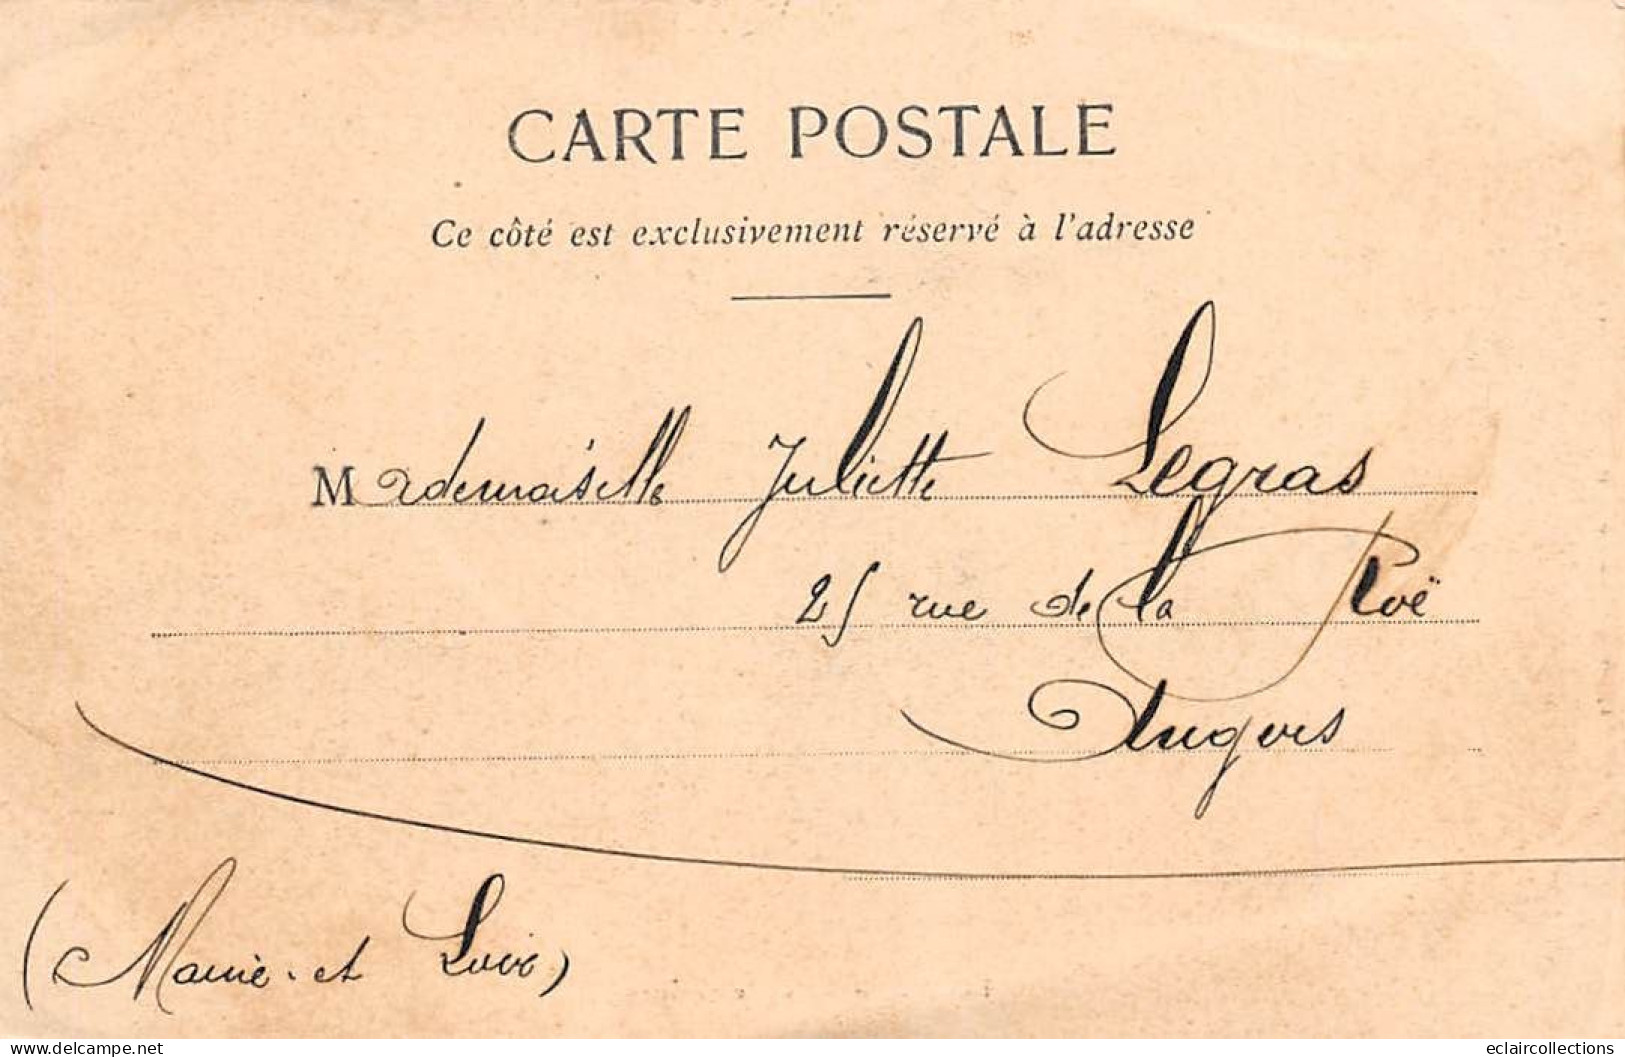 CARTE POSTALE
Ce côté est exclusivement réservé à l'adresse
Mademoiselle Juliette Legras
25 rue de la Roë
Angers
(Maine-et Loire)
www.delcampe.net
eclaircollections